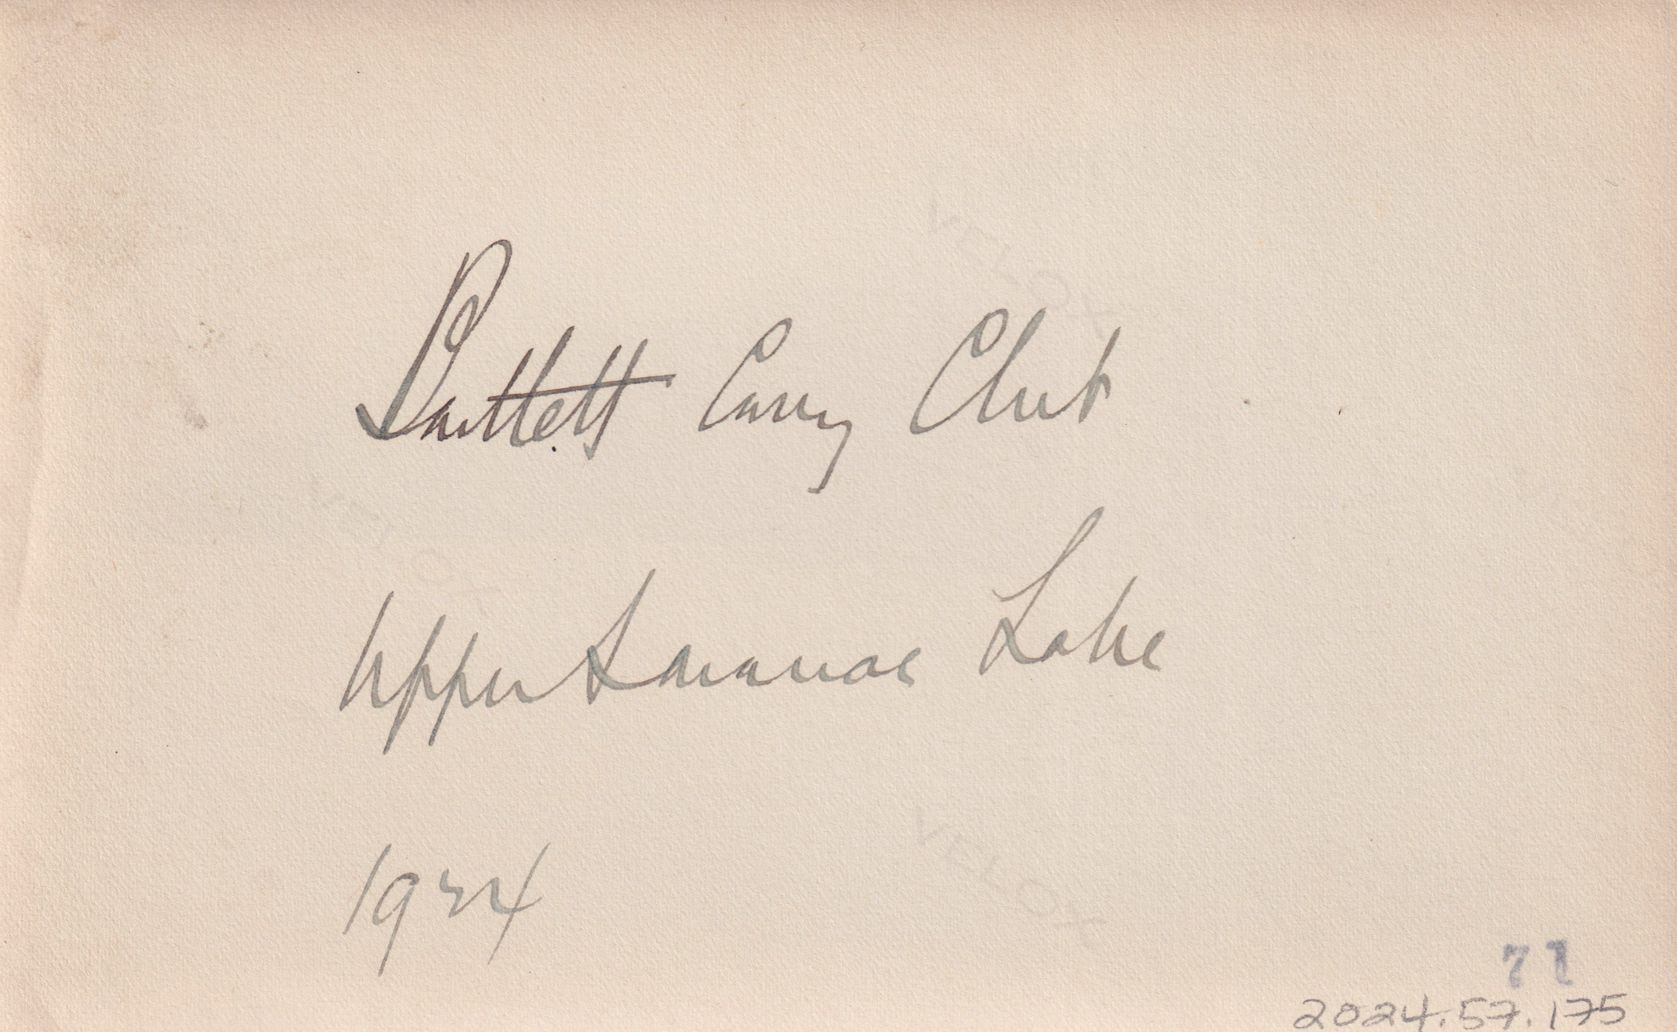 VELOX
Bartlett Carry Club
VELOX
Upper Saranac Lake
VELOX
1924
71
2024.57.175